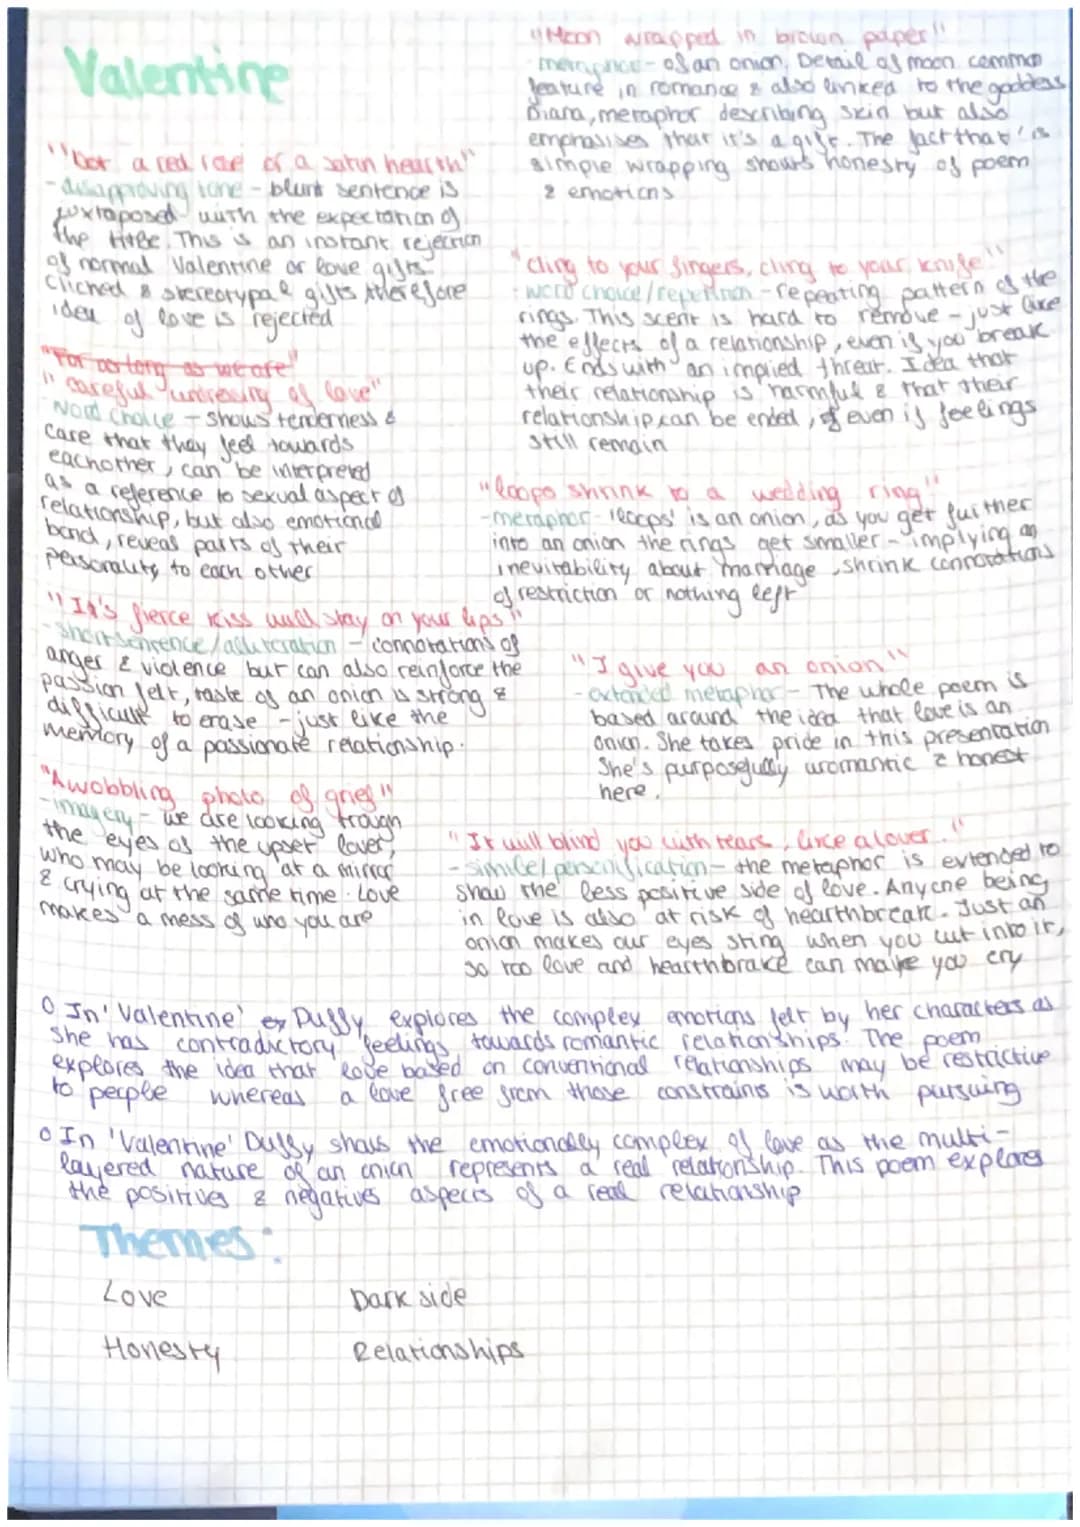 Valentine
"Not a red rose or a satin hearth"
- disapproving tone - blunt sentence is
juxtaposed with the expectation of
the title. This is an instant rejection
of normal Valentine or love gifts.
Cliched & stereotypal gifts therefore
idea of love is rejected
"For as long as we are"
"careful undressing of love"
Word choice - shows tenderness &
care that they feel towards
eachother, can be interpreted
as a reference to sexual aspect of
relationship, but also emotional
bond, reveal parts of their
personality to each other
"It's fierce kiss will stay on your lips"
- short sentence/alliteration - connotations of
anger & violence but can also reinforce the
passion felt, taste of an onion is strong &
difficult to erase - just like the
memory of a passionate relationship.
"A wobbling photo of grief"
- imagery - we are looking trough
the eyes of the upset lover,
who may be looking at a mirror
& crying at the same time. Love
makes a mess of who you are
"Moon wrapped in brown paper"
metaphor - of an onion, Detail of moon common
feature in romance & also linked to the goddess
Diana, metaphor describing skin but also
emphasises that it's a gift. The fact that 's
simple wrapping shows honesty of poem
& emotions
"Cling to your fingers, cling to your knife"
- word choice/repetition - repeating pattern of the
rings. This scent is hard to remove - just like
the effects of a relationship, even if you break
up. Ends with an implied threat. Idea that
their relationship is harmful & that their
relationship can be ended, even if feelings
still remain
"loops shrink to a wedding ring"
- metaphor - 'loops' is an onion, as you get further
into an onion the rings get smaller - implying an
inevitability about marriage, shrink connotations
of restriction or nothing left
"I give you an onion"
- extended metaphor - The whole poem is
based around the idea that love is an
onion. She takes pride in this presentation
She's purposefully uromantic & honest
here.
"It will blind you with tears, like a lover.."
- simile/personification - the metaphor is extended to
show the less positive side of love. Anyone being
in love is also at risk of hearthbreak. Just an
onion makes our eyes sting when you cut into it,
so too love and hearthbrake can make you cry
o In 'Valentine' Duffy explores the complex emotions felt by her characters as
she has contradictory feelings towards romantic relationships. The poem
explores the idea that love based on conventional relationships may be restrictive
to people whereas a love free from those constraints is worth pursuing
o In 'Valentine' Duffy shows the emotionally complex of love as the multi-
layered nature of an onion represents a real relationship. This poem explores
the positives & negatives aspects of a real relationship
Themes:
Love Dark side
Honesty Relationships